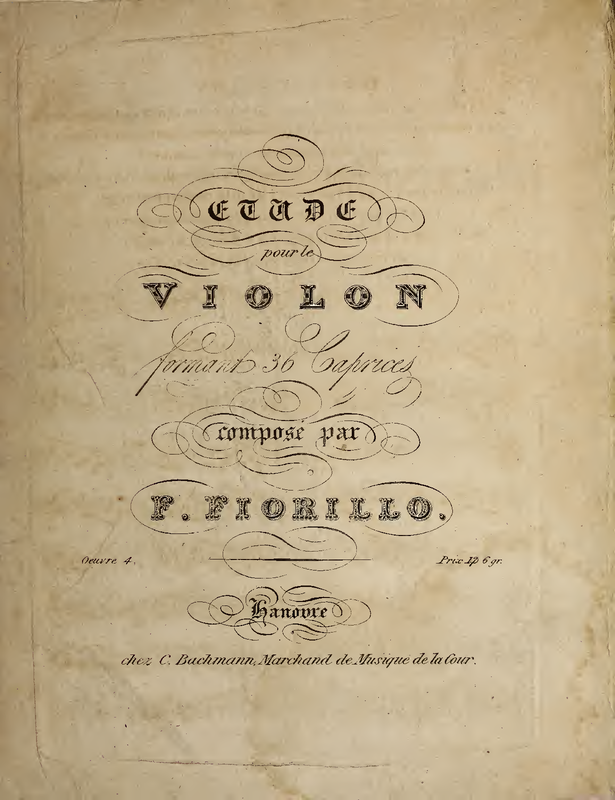 ETUDE
pour le
VIOLON
formant 36 Caprices
composé par
F. FIORILLO.
Oeuvre 4. Prix 6 gr.
Hanovre
chez C. Bachmann, Marchand de Musique de la Cour.